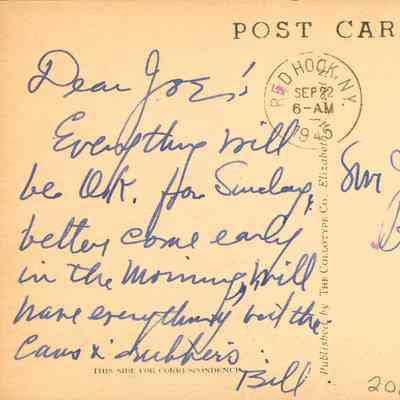 POST CAR
RED HOOK, N.Y.
SEP 22
6-AM
1945
Dear Joe's
Everything will
be O.K. for Sunday,
better come early
in the morning, will
have everything but the
cans & rubbers.
Bill
Published by The Collotype Co., Elizabeth
THIS SIDE FOR CORRESPONDENCE
20